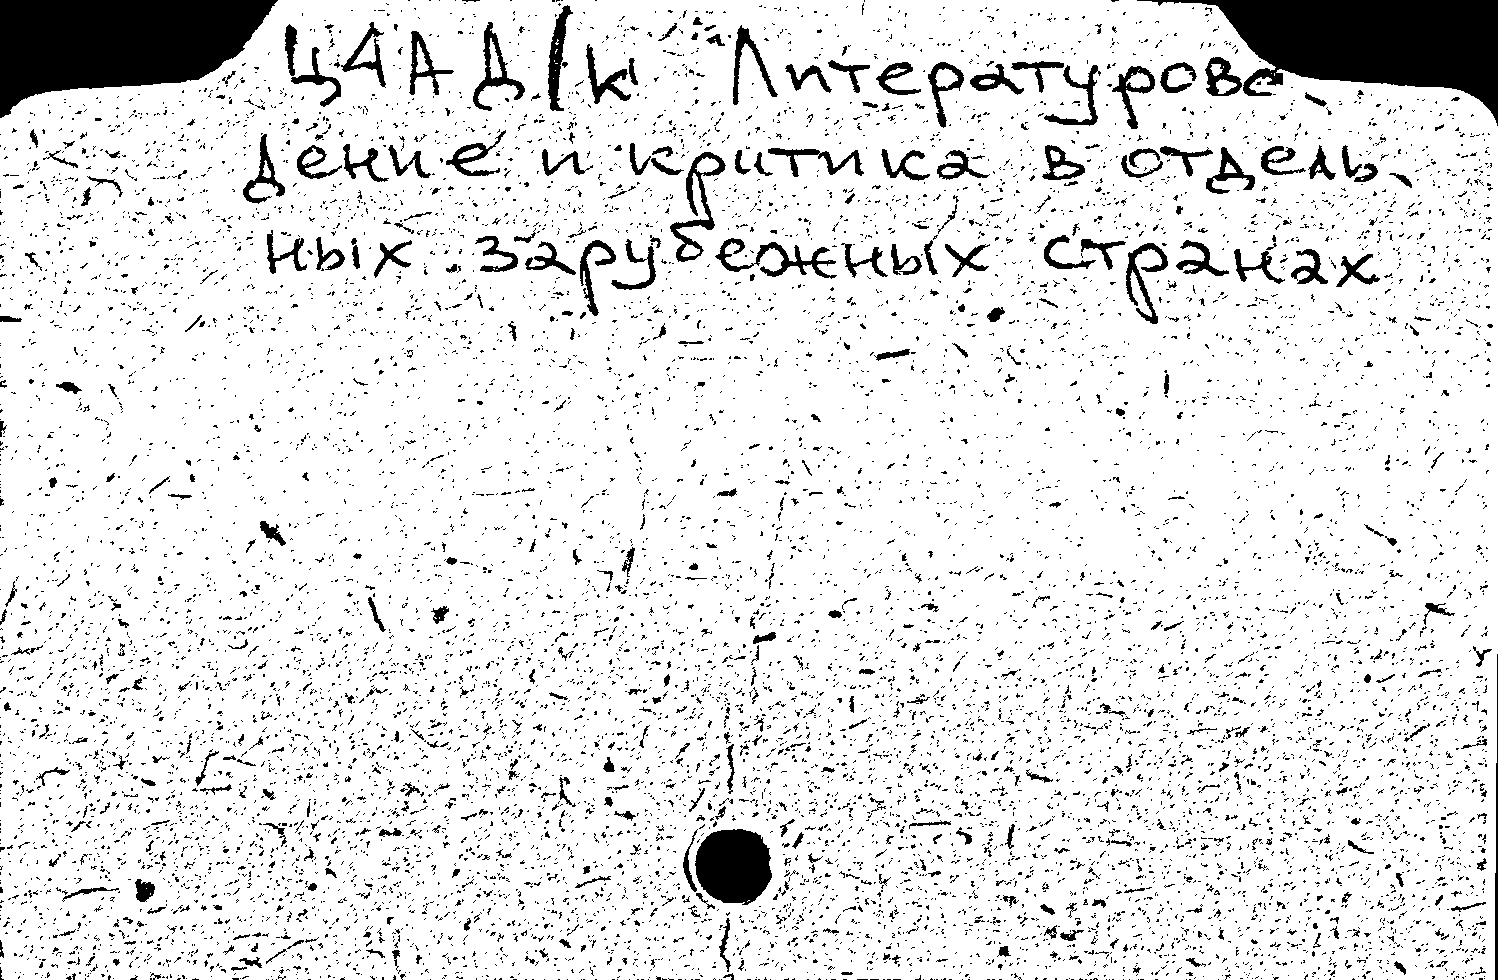 Ц4АД/к Литературове-
дение и критика в отдель-
ных зарубежных странах